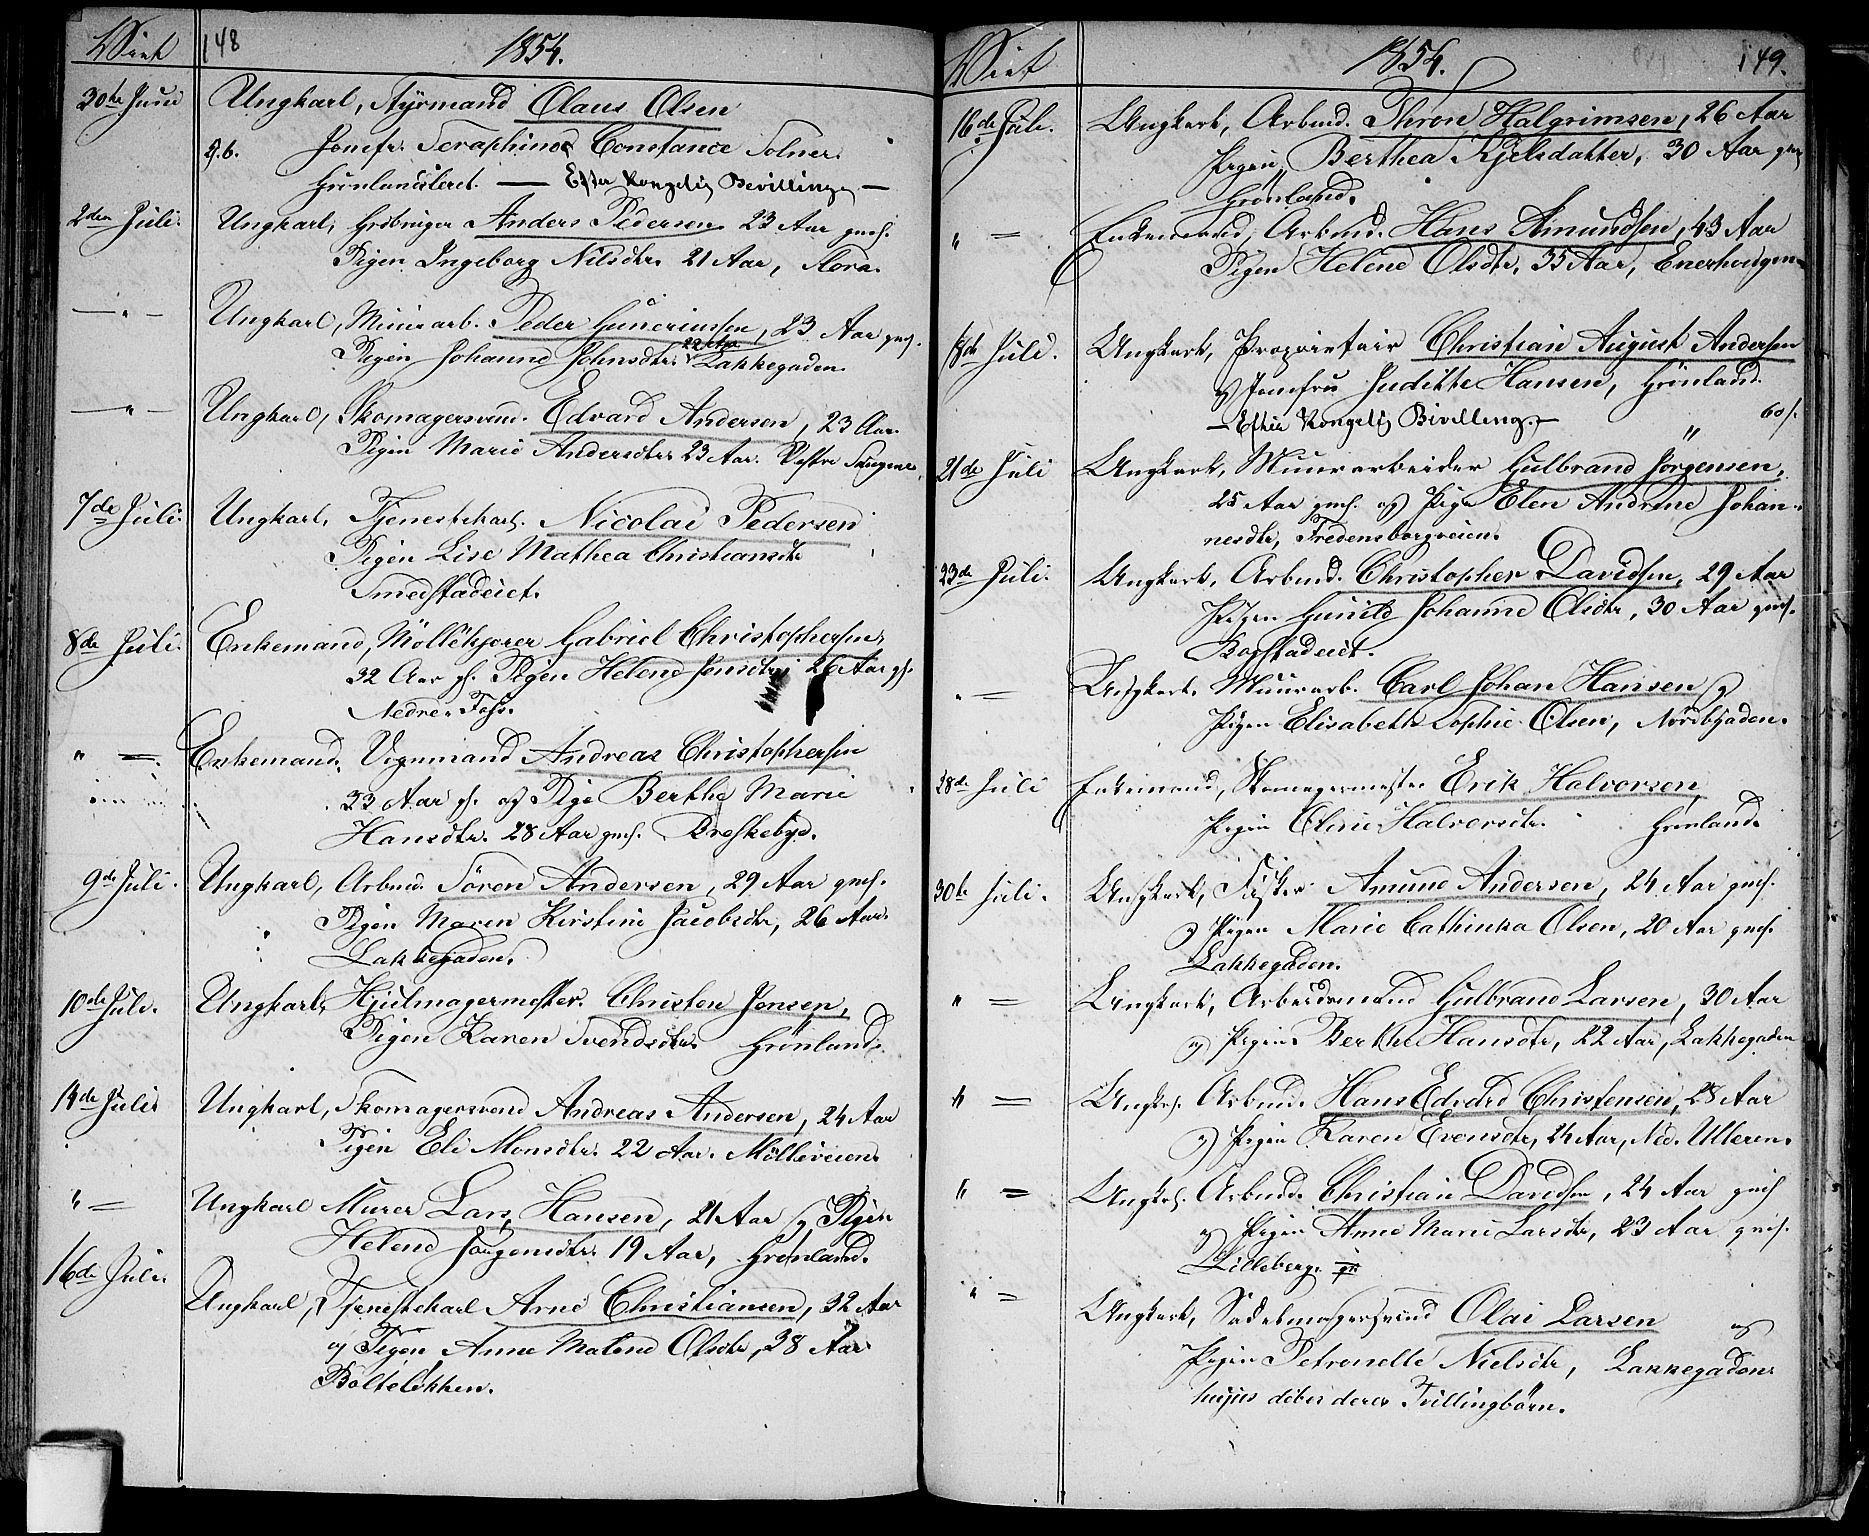 Viet 148 1854.
30te Juni Ungkarl, Styrmand Claus Olsen
Jomfr. Seraphine Constance Solner.
Grönlandsleret. — Efter Kongelig Bevilling —
2den Juli. Ungkarl, Anders Pedersen 23 Aar gml.
Pigen Ingeborg Nilsdtr. 21 Aar, Flora.
— " — Ungkarl, Murarb. Peder Guneriussen, 23 Aar gml.
Pigen Johanne Johnsdtr. 22 Aar Lakkegaden.
— " — Ungkarl, Skomagersvend. Edvard Andersen, 23 Aar.
Pigen Marie Andersdtr. 23 Aar.
7de Juli. Ungkarl, Tjenestekarl. Nicolai Pedersen
Pigen Lise Mathea Christiansdtr
Smedstadeiet.
8de Juli. Enkemand, Möllekjorer Gabriel Christophersen,
32 Aar gl. Pigen Helene Jensdtr 26 Aar gl.
Nedre Foss.
" = Enkemand, Vognmand Andreas Christophersen
33 Aar gl. og Pige Berthe Marie
Hansdtr. 28 Aar gml. Breskebye.
9de Juli. Ungkarl, Arbmd. Sören Andersen, 29 Aar gml.
Pigen Maren Kirstine Jacobsdtr, 26 Aar.
Lakkegaden.
10de Juli. Ungkarl, Hjulmagermester. Christen Jensen,
Pigen Karen Svendsdtr. Grönland.
14de Juli Ungkarl, Skomagersvend Andreas Andersen, 24 Aar
Pigen Eli Monsdtr. 22 Aar. Mölleveien.
" = Ungkarl Murer Lars Hansen, 21 Aar og Pigen
Helene Jörgensdtr. 19 Aar, Grönland.
16de Juli. Ungkarl, Tjenestekarl Arne Christiansen, 32 Aar
og Pigen Anne Malene Olsdtr, 38 Aar
Bölteløkken.
Viet 1854. 149.
16de Juli. Ungkarl, Arbmd. Thron Halgrimsen, 26 Aar
Pigen Berthea Kjelsdatter, 30 Aar gml
Grönland.
" = Enkemand, Arbmd. Hans Amundsen, 43 Aar
Pigen Helene Olsdtr, 35 Aar, Enerhougen
18de Juli. Ungkarl, Proprietair Christian August Andersen
og Jomfru Judithe Hansen, Grönland.
— Efter Kongelig Bevilling. — 60/.
21de Juli Ungkarl, Muurarbeider Gulbrand Jörgensen,
25 Aar gml. og Pige Elen Andrine Johan-
nesdtr, Fredensborgveien.
23de Juli. Ungkarl, Arbmd. Christopher Davidsen, 29 Aar
Pigen Gunild Johanne Olsdtr, 30 Aar gml.
Bogstadeiet.
" = Ungkarl. Muurarb. Carl Johan Hansen og
Pigen Elisabeth Sophie Olsen, Nordbygaden.
28de Juli Enkemand, Skomagermester Erik Halvorsen,
Pigen Eline Halvorsdtr. Grönland.
30te Juli. Ungkarl, Fisker Amund Andersen, 24 Aar gml.
og Pigen Marie Cathinka Olsen, 20 Aar gml.
Lakkegaden.
" = Ungkarl, Arbeidsmand Gulbrand Larsen, 30 Aar
og Pigen Berthe Hansdtr, 22 Aar, Lakkegaden
" = Ungkarl. Arbmd. Hans Edvard Christensen, 28 Aar
og Pigen Karen Evensdtr, 24 Aar, Ned. Ulleren.
" = Ungkarl. Arbmd. Christian Davidsen, 24 Aar gml
og Pigen Anne Marie Larsdtr, 23 Aar gml.
Lilleberg.
" = Ungkarl, Sadelmagersvend Olai Larsen og
Pigen Petronelle Nielsdtr, Lakkegaden
deres Tvillingbörn.